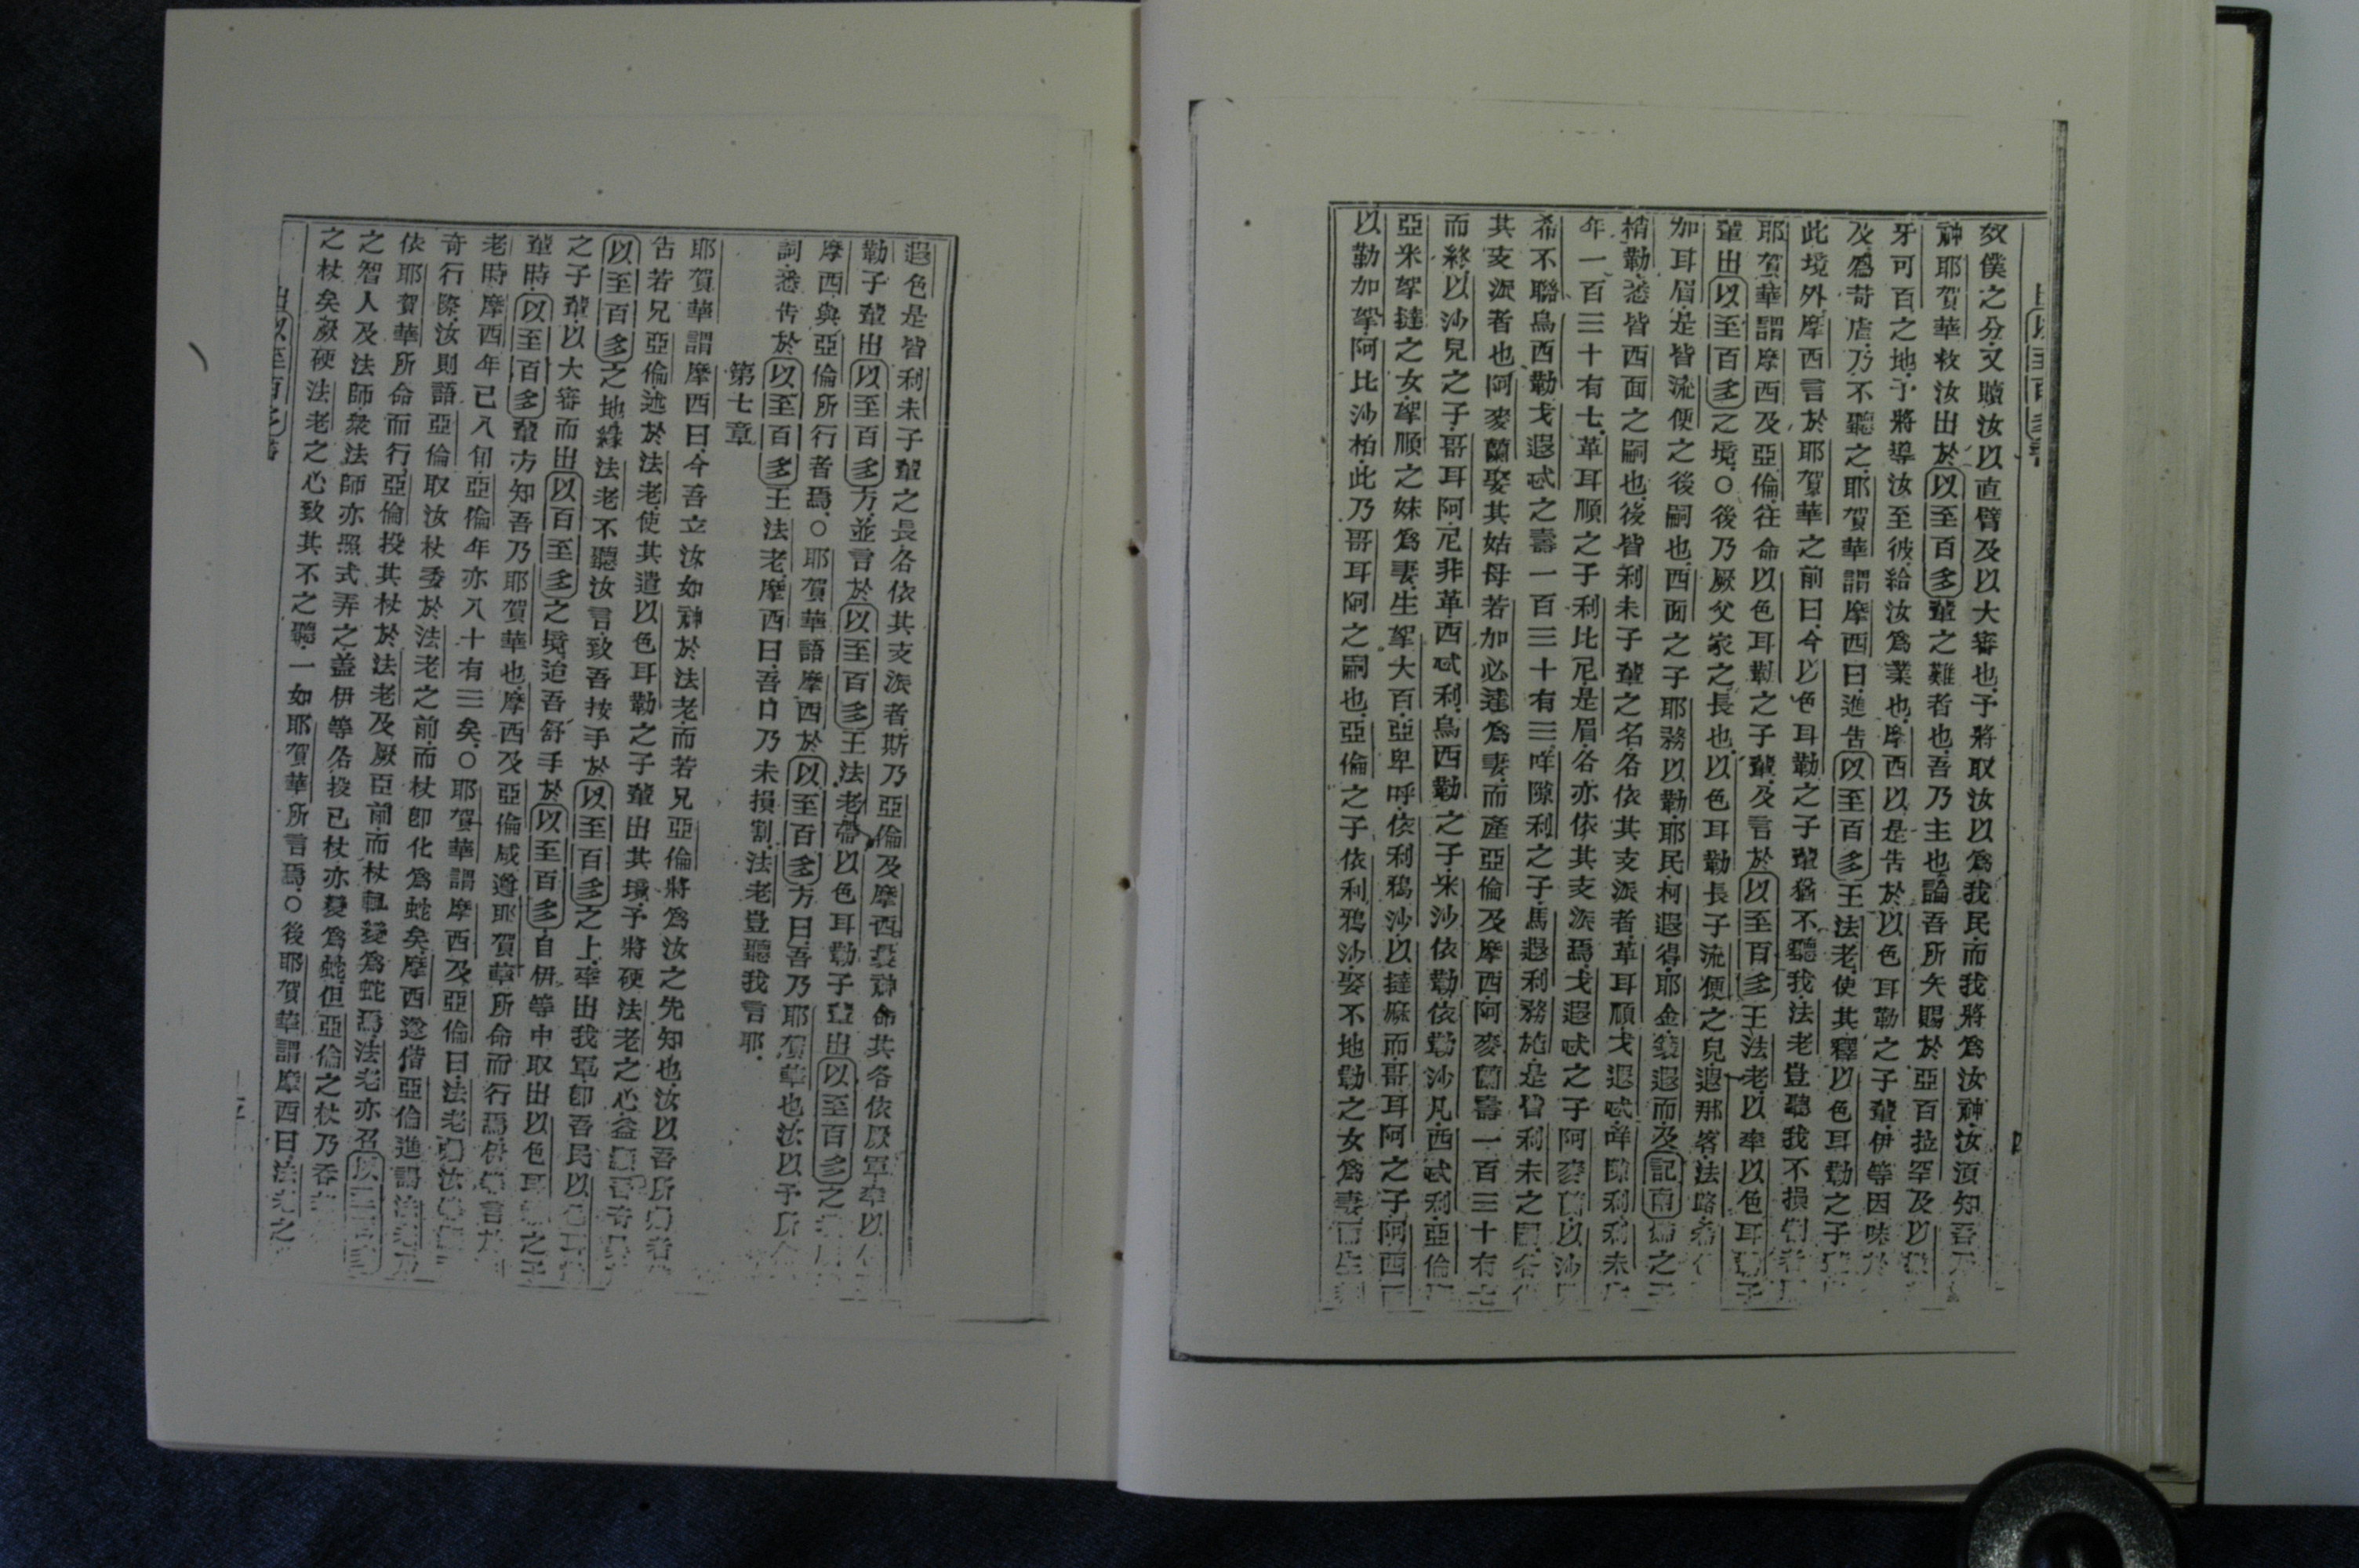 出以至百多書
四
奴僕之分又贖汝以直臂及以大審也予將取汝以為我民而我將為汝神汝須知吾乃
神耶賀華救汝出於以至百多輩之難者也吾乃主也論吾所矢賜於亞百拉罕及以
牙可百之地予將導汝至彼給汝為業也摩西以是告於以色耳勒之子輩伊等因味於
及為苛虐乃不聽之耶賀華謂摩西曰進告以至百多王法老使其釋以色耳勒之子
此境外摩西言於耶賀華之前曰今以色耳勒之子輩猶不聽我法老豈聽我不損割者
耶賀華謂摩西及亞倫往命以色耳勒之子輩及言於以至百多王法老以率以色耳勒子
輩出以至百多之境○後乃厥父家之長也以色耳勒長子流便之兒遐那客法路希
加耳眉是皆流便之後嗣也西面之子耶務以勒耶民柯遐得耶金鎖遐而及記南倫之子
稍勒悉皆西面之嗣也後皆利未子輩之名各依其支派者革耳順戈遐忒咩隙利利未
年一百三十有七革耳順之子利比尼是眉各亦依其支派焉戈遐忒之子阿麥蘭以沙
希不聯烏西勒戈遐忒之壽一百三十有三咩隙利之子馬遐利務施是皆利未之嗣各
其支派者也阿麥蘭娶其姑母若加必達為妻而產亞倫及摩西阿麥蘭壽一百三十有七
而終以沙兒之子哥耳阿尼非革西忒利烏西勒之子米沙依勒依勒沙凡西忒利亞倫
亞米拏撻之女拏順之妹為妻生拏大百亞卑呼依利鴉沙以撻麻而哥耳阿之子阿西
以勒加拏阿比沙柏此乃哥耳阿之嗣也亞倫之子依利鴉沙娶不地勒之女為妻而生
遐色是皆利未子輩之長各依其支派者斯乃亞倫及摩西聂神命其各依厥軍率以
勒子輩出以至百多方並言於以至百多王法老帶以色耳勒子輩出以至百多之
摩西與亞倫所行者焉○耶賀華語摩西於以至百多方曰吾乃耶賀華也汝以予所
詞悉告於以至百多王法老摩西曰吾口乃未損割法老豈聽我言耶
第七章
耶賀華謂摩西曰今吾立汝如神於法老而若兄亞倫將為汝之先知也汝以吾所
告若兄亞倫述於法老使其遣以色耳勒之子輩出其境予將硬法老之心益
以至百多之地緣法老不聽汝言致吾按手於以至百多之上率出我軍卽吾民以
之子輩以大審而出以百至多之境迨吾舒手於以至百多自伊等中取出以色耳勒之子
輩時以至百多輩方知吾乃耶賀華也摩西及亞倫咸遵耶賀華所命而行焉
老時摩西年已八旬亞倫年亦八十有三矣○耶賀華謂摩西及亞倫曰法老
奇行際汝則語亞倫取汝杖委於法老之前而杖卽化為蛇矣摩西遂偕亞倫進謁法老
依耶賀華所命而行亞倫投其杖於法老及厥臣前而杖輒變為蛇焉法老亦召以至百多
之智人及法師眾法師亦照式弄之蓋伊等各投己杖亦變為蛇但亞倫之杖乃吞
之杖矣厥硬法老之心致其不之聽一如耶賀華所言焉○後耶賀華謂摩西曰法老之
出以至百多書
五